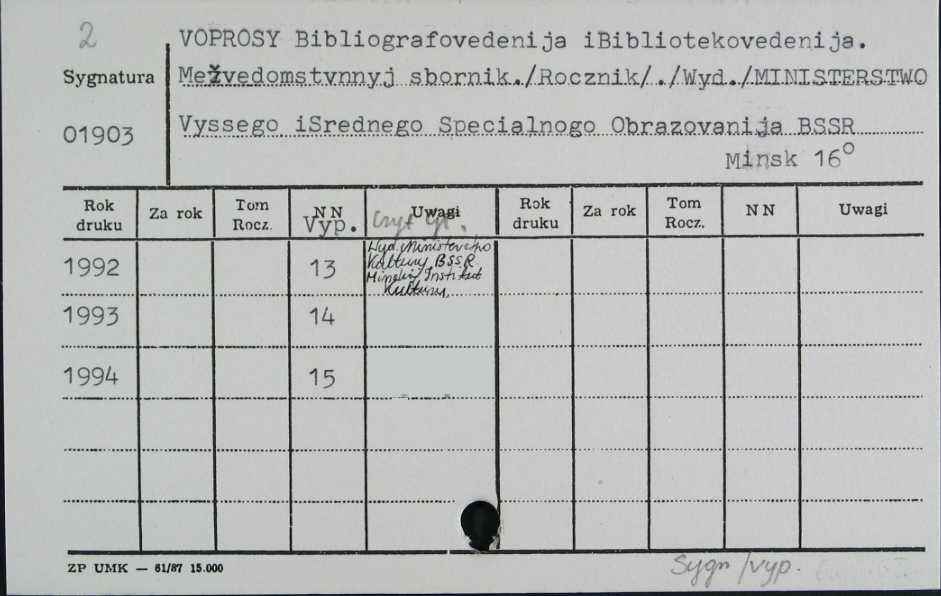 2
VOPROSY Bibliografovedenija iBibliotekovedenija.
Sygnatura
Mežvedomstvnnyj sbornik./Rocznik/./Wyd./MINISTERSTWO
01903
Vyssego iSrednego Specialnogo Obrazovanija BSSR
Minsk 16°
Rok druku Za rok Tom Rocz. NN Vyp. Uwagi Rok druku Za rok Tom Rocz. NN Uwagi
1992 13 Wyd. Ministerstvo
Kultury BSSR
Minskij Institut
Kultury
1993 14
1994 15
ZP UMK — 61/87 15.000
Sygn/vyp.